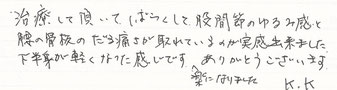 治療して頂いて、しばらくして、股間節のゆるみ感と
腰の骨板のだる痛さが取れているのが実感出来ました。
下半身が軽くなった感じです。ありがとうございます。
楽になりました
K.K